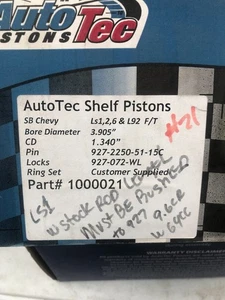 AutoTec
PISTONS
AutoTec Shelf Pistons
SB Chevy Ls1,2,6 & L92 F/T
Bore Diameter 3.905"
CD 1.340"
Pin 927-2250-51-15C
Locks 927-072-WL
Ring Set Customer Supplied
Part# 1000021
LS1
w STOCK ROD
MUST BE BUSHED
to 927 9.cer
w 64cc
WARRANTY DISCLAIMER